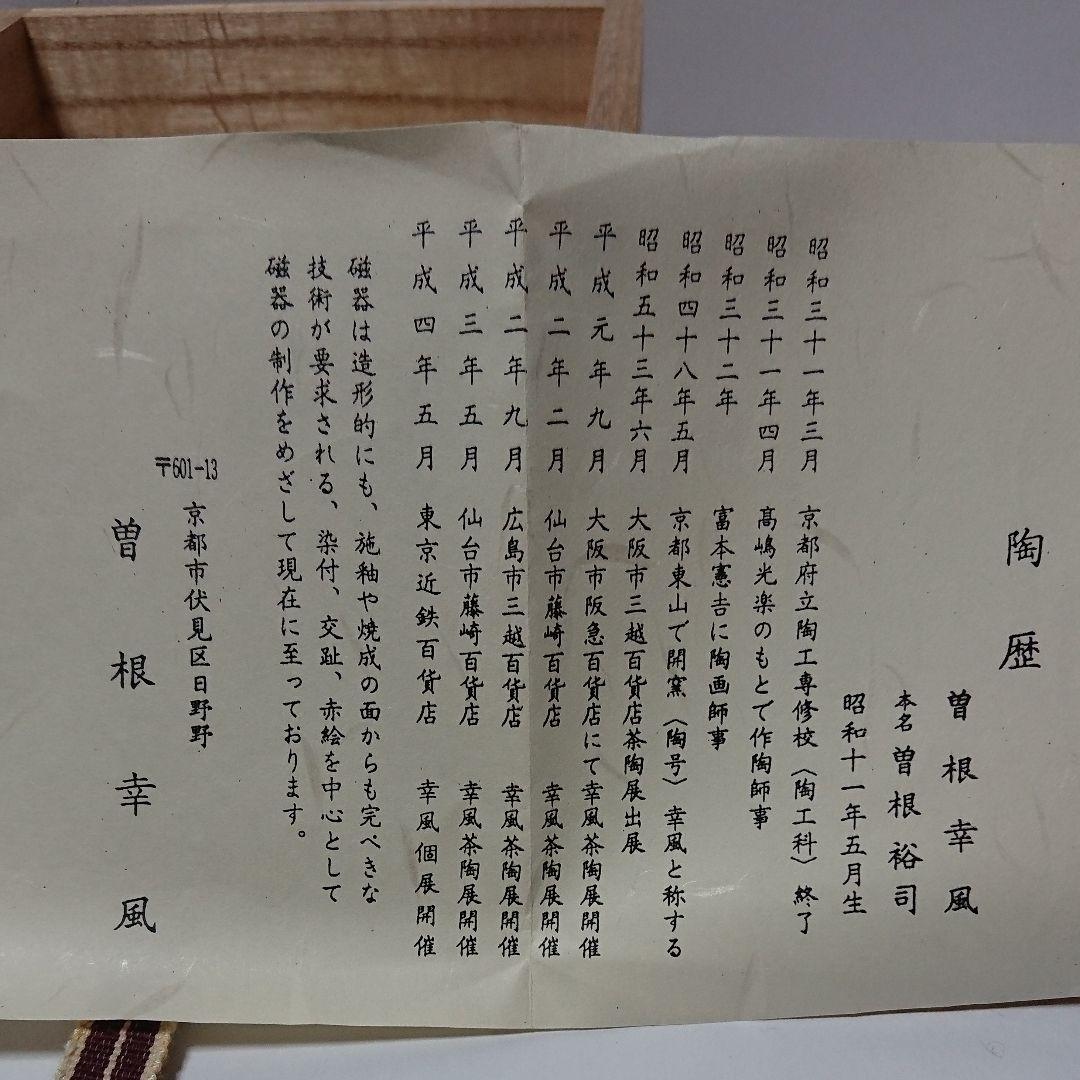 陶歴
曽根幸風
本名 曽根裕司
昭和十一年五月生
昭和三十一年三月 京都府立陶工専修校〈陶工科〉終了
昭和三十一年四月 髙嶋光楽のもとで作陶師事
昭和三十二年 富本憲吉に陶画師事
昭和四十八年五月 京都東山で開窯〈陶号〉幸風と称する
昭和五十三年六月 大阪市三越百貨店茶陶展出展
平成元年九月 大阪市阪急百貨店にて幸風茶陶展開催
平成二年二月 仙台市藤崎百貨店 幸風茶陶展開催
平成二年九月 広島市三越百貨店 幸風茶陶展開催
平成三年五月 仙台市藤崎百貨店 幸風茶陶展開催
平成四年五月 東京近鉄百貨店 幸風個展開催
磁器は造形的にも、施釉や焼成の面からも完ぺきな
技術が要求される、染付、交趾、赤絵を中心として
磁器の制作をめざして現在に至っております。
〒601-13
京都市伏見区日野野
曽根幸風